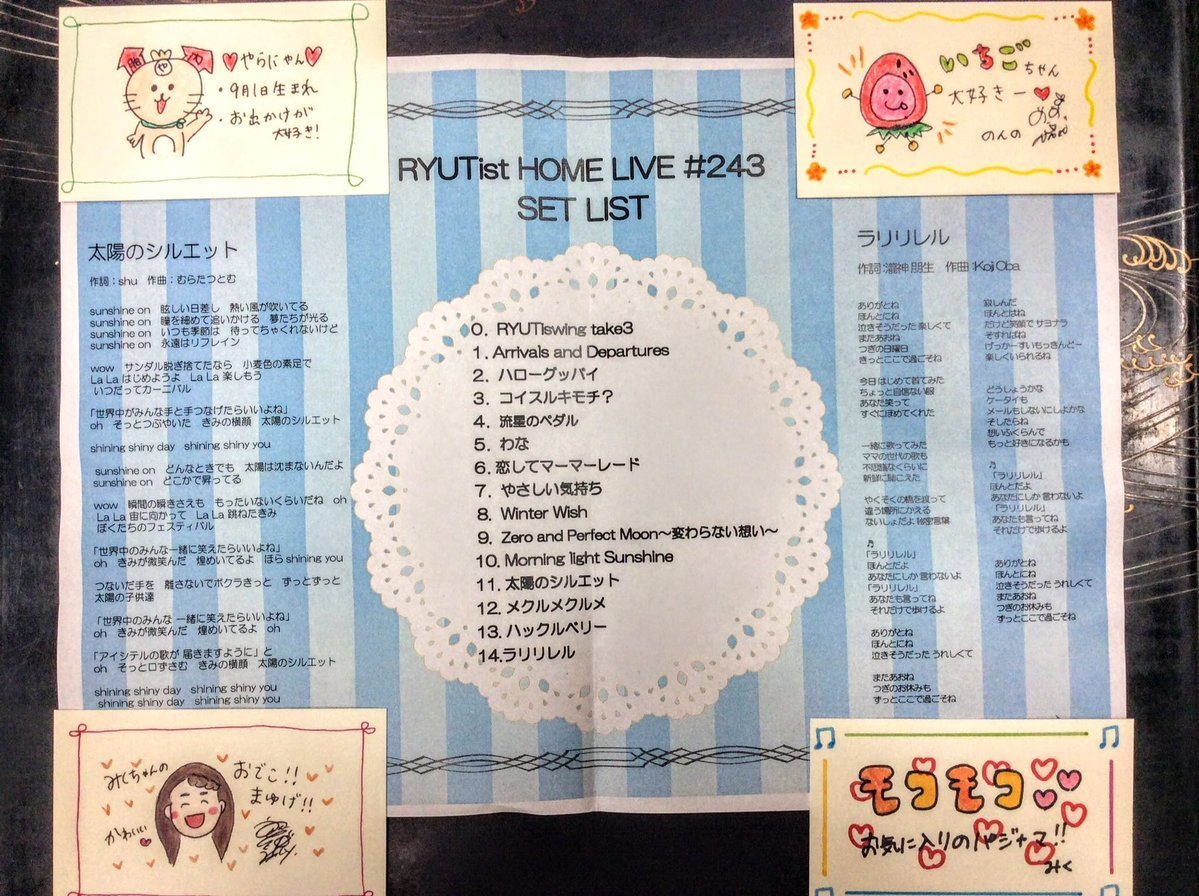 胎
や
内
やらにゃん
・9月1日生まれ
・お出かけが
大好き!
いちごちゃん
大好きー
のんの
RYUTist HOME LIVE #243
SET LIST
太陽のシルエット
作詞：shu　作曲：むらたつとむ
sunshine on　眩しい日差し　熱い風が吹いてる
sunshine on　瞳を細めて追いかける　夢たちが光る
sunshine on　いつも季節は　待ってちゃくれないけど
sunshine on　永遠はリフレイン
wow　サンダル脱ぎ捨てたなら　小麦色の素足で
La La はじめようよ　La La 楽しもう
いつだってカーニバル
「世界中がみんな手と手つなげたらいいよね」
oh　そっとつぶやいた　きみの横顔　太陽のシルエット
shining shiny day　shining shiny you
sunshine on　どんなときでも　太陽は沈まないんだよ
sunshine on　どこかで昇ってる
wow　瞬間の瞬きさえも　もったいないくらいだね　oh
La La 宙に向かって　La La 跳ねたきみ
ぼくたちのフェスティバル
「世界中のみんな一緒に笑えたらいいよね」
oh　きみが微笑んだ　煌めいてるよ　ほら shining you
つないだ手を　離さないでボクラきっと　ずっとずっと
太陽の子供達
「世界中のみんな 一緒に笑えたらいいよね」
oh　きみが微笑んだ　煌めいてるよ　oh
「アイシテルの歌が 届きますように」と
oh　そっと口ずさむ　きみの横顔　太陽のシルエット
shining shiny day　shining shiny you
shining shiny day　shining shiny you
0. RYUTiswing take3
1. Arrivals and Departures
2. ハローグッバイ
3. コイスルキモチ？
4. 流星のペダル
5. わな
6. 恋してマーマーレード
7. やさしい気持ち
8. Winter Wish
9. Zero and Perfect Moon～変わらない想い～
10. Morning light Sunshine
11. 太陽のシルエット
12. メクルメクルメ
13. ハックルベリー
14.ラリリレル
ラリリレル
作詞：瀧神 朋生　作曲：Koji Oba
ありがとね
ほんとにね
泣きそうだった 楽しくて
またあおね
つぎの日曜日
きっとここで過ごそね
今日はじめて着てみた
ちょっと自信ない服
あなた笑って
すぐにほめてくれた
一緒に歌ってみた
ママの世代の歌も
不思議なくらいに
新鮮に聞こえた
やくそくの橋を渡って
違う場所にかえる
ないしょだよ 秘密言葉
♬
「ラリリレル」
ほんとだよ
あなたにしか 言わないよ
「ラリリレル」
あなたも言ってね
それだけで歩けるよ
ありがとね
ほんとにね
泣きそうだった うれしくて
またあおね
つぎのお休みも
ずっとここで過ごそね
寂しんだ
ほんとはね
だけど笑顔で サヨナラ
そすればね
げっかーすいもっきんどー
楽しくいられるね
どうしょうかな
ケータイも
メールもしないにしよかな
そしたらね
想いふくらんで
もっと好きになるかも
♬
「ラリリレル」
ほんとだよ
あなたにしか 言わないよ
「ラリリレル」
あなたも言ってね
それだけで歩けるよ
ありがとね
ほんとにね
泣きそうだった うれしくて
またあおね
つぎのお休みも
ずっとここで過ごそね
みくちゃんの
おでこ!!
まゆげ!!
かわいい
モコモコ
お気に入りのパジャマ!!
みく